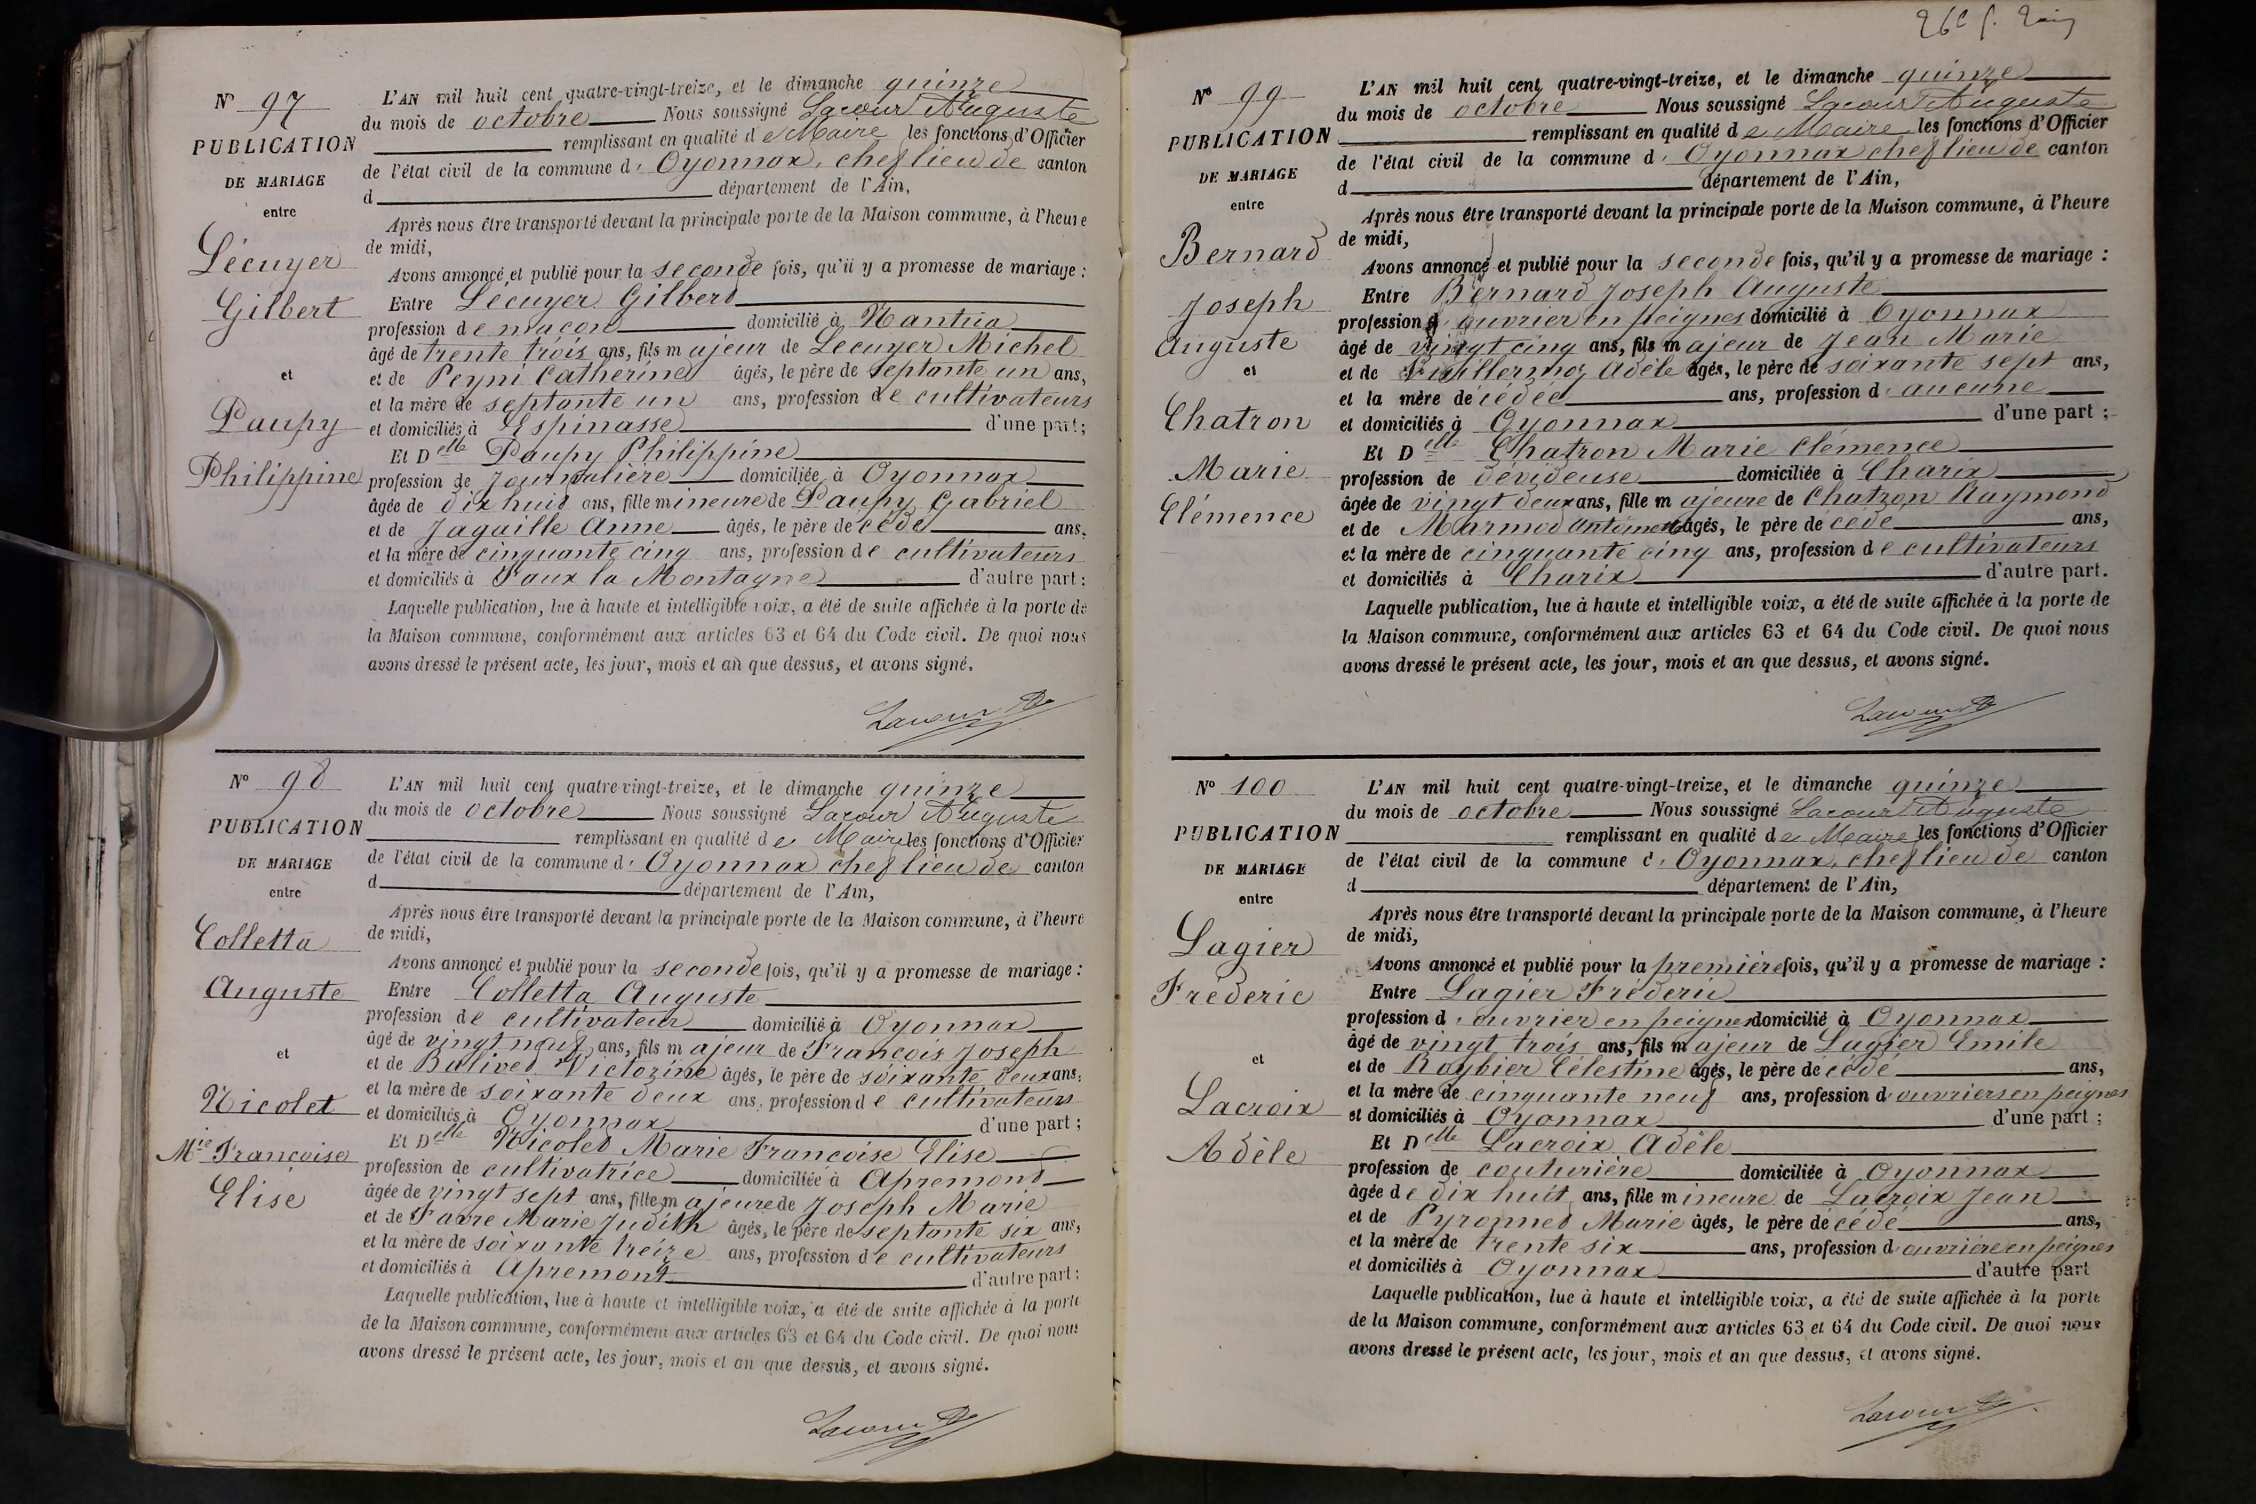 Nº 97
PUBLICATION
DE MARIAGE
entre
Lécuyer
Gilbert
et
Paupy
Philippine
L'AN mil huit cent quatre-vingt-treize, et le dimanche quinze
du mois de octobre Nous soussigné Lacour Auguste
remplissant en qualité de Maire les fonctions d'Officier
de l'état civil de la commune d' Oyonnax, chef lieu de canton
d département de l'Ain,
Après nous être transporté devant la principale porte de la Maison commune, à l'heure
de midi,
Avons annoncé et publié pour la seconde fois, qu'il y a promesse de mariage :
Entre Lécuyer Gilbert
profession de maçon domicilié à Nantua
âgé de trente trois ans, fils majeur de Lécuyer Michel
et de Peyni Catherine âgés, le père de septante un ans,
et la mère de septante un ans, profession de cultivateurs
et domiciliés à Espinasse d'une part ;
Et Delle Paupy Philippine
profession de Journalière domiciliée à Oyonnax
âgée de dix huit ans, fille mineure de Paupy Gabriel
et de Jagaille Anne âgés, le père de cédé ans,
et la mère de cinquante cinq ans, profession de cultivateurs
et domiciliés à Faux la Montagne d'autre part :
Laquelle publication, lue à haute et intelligible voix, a été de suite affichée à la porte de
la Maison commune, conformément aux articles 63 et 64 du Code civil. De quoi nous
avons dressé le présent acte, les jour, mois et an que dessus, et avons signé.
Lacour
Nº 98
PUBLICATION
DE MARIAGE
entre
Colletta
Auguste
et
Nicolet
Mie Françoise
Elise
L'AN mil huit cent quatre-vingt-treize, et le dimanche quinze
du mois de octobre Nous soussigné Lacour Auguste
remplissant en qualité de Maire les fonctions d'Officier
de l'état civil de la commune d' Oyonnax chef lieu de canton
d département de l'Ain,
Après nous être transporté devant la principale porte de la Maison commune, à l'heure
de midi,
Avons annoncé et publié pour la seconde fois, qu'il y a promesse de mariage :
Entre Colletta Auguste
profession de cultivateur domicilié à Oyonnax
âgé de vingt neuf ans, fils majeur de François Joseph
et de Balivet Victorine âgés, le père de soixante deux ans,
et la mère de soixante deux ans, profession de cultivateurs
et domiciliés à Oyonnax d'une part ;
Et Delle Nicolet Marie Francoise Elise
profession de cultivatrice domiciliée à Apremont
âgée de vingt sept ans, fille majeure de Joseph Marie
et de Favre Marie Judith âgés, le père de septante six ans,
et la mère de soixante treize ans, profession de cultivateurs
et domiciliés à Apremont d'autre part :
Laquelle publication, lue à haute et intelligible voix, a été de suite affichée à la porte
de la Maison commune, conformément aux articles 63 et 64 du Code civil. De quoi nous
avons dressé le présent acte, les jour, mois et an que dessus, et avons signé.
Lacour
26e f.
Nº 99
PUBLICATION
DE MARIAGE
entre
Bernard
Joseph
Auguste
et
Chatron
Marie
Clémence
L'AN mil huit cent quatre-vingt-treize, et le dimanche quinze
du mois de octobre Nous soussigné Lacour Auguste
remplissant en qualité de Maire les fonctions d'Officier
de l'état civil de la commune d' Oyonnax chef lieu de canton
d département de l'Ain,
Après nous être transporté devant la principale porte de la Maison commune, à l'heure
de midi,
Avons annoncé et publié pour la seconde fois, qu'il y a promesse de mariage :
Entre Bernard Joseph Auguste
profession d' ouvrier en peignes domicilié à Oyonnax
âgé de vingt cinq ans, fils majeur de Jean Marie
et de Vuillermoz Adèle âgés, le père de soixante sept ans,
et la mère décédée ans, profession d' aucune
et domiciliés à Oyonnax d'une part ;
Et Delle Chatron Marie Clémence
profession de dévideuse domiciliée à Charix
âgée de vingt deux ans, fille majeure de Chatron Raymond
et de Marmod âgés, le père de cédé ans,
et la mère de cinquante cinq ans, profession de cultivateurs
et domiciliés à Charix d'autre part.
Laquelle publication, lue à haute et intelligible voix, a été de suite affichée à la porte de
la Maison commune, conformément aux articles 63 et 64 du Code civil. De quoi nous
avons dressé le présent acte, les jour, mois et an que dessus, et avons signé.
Lacour
Nº 100
PUBLICATION
DE MARIAGE
entre
Lagier
Fréderic
et
Lacroix
Adèle
L'AN mil huit cent quatre-vingt-treize, et le dimanche quinze
du mois de octobre Nous soussigné Lacour Auguste
remplissant en qualité de Maire les fonctions d'Officier
de l'état civil de la commune d' Oyonnax, chef lieu de canton
d département de l'Ain,
Après nous être transporté devant la principale porte de la Maison commune, à l'heure
de midi,
Avons annoncé et publié pour la première fois, qu'il y a promesse de mariage :
Entre Lagier Fréderic
profession d' ouvrier en peignes domicilié à Oyonnax
âgé de vingt trois ans, fils majeur de Lagier Emile
et de Roybier Célestine âgés, le père de cédé ans,
et la mère de cinquante neuf ans, profession d' ouvriers en peignes
et domiciliés à Oyonnax d'une part ;
Et Delle Lacroix Adèle
profession de couturière domiciliée à Oyonnax
âgée de dix huit ans, fille mineure de Lacroix Jean
et de Pyronnet Marie âgés, le père décédé ans,
et la mère de trente six ans, profession d' ouvrière en peignes
et domiciliés à Oyonnax d'autre part
Laquelle publication, lue à haute et intelligible voix, a été de suite affichée à la porte
de la Maison commune, conformément aux articles 63 et 64 du Code civil. De quoi nous
avons dressé le présent acte, les jour, mois et an que dessus, et avons signé.
Lacour